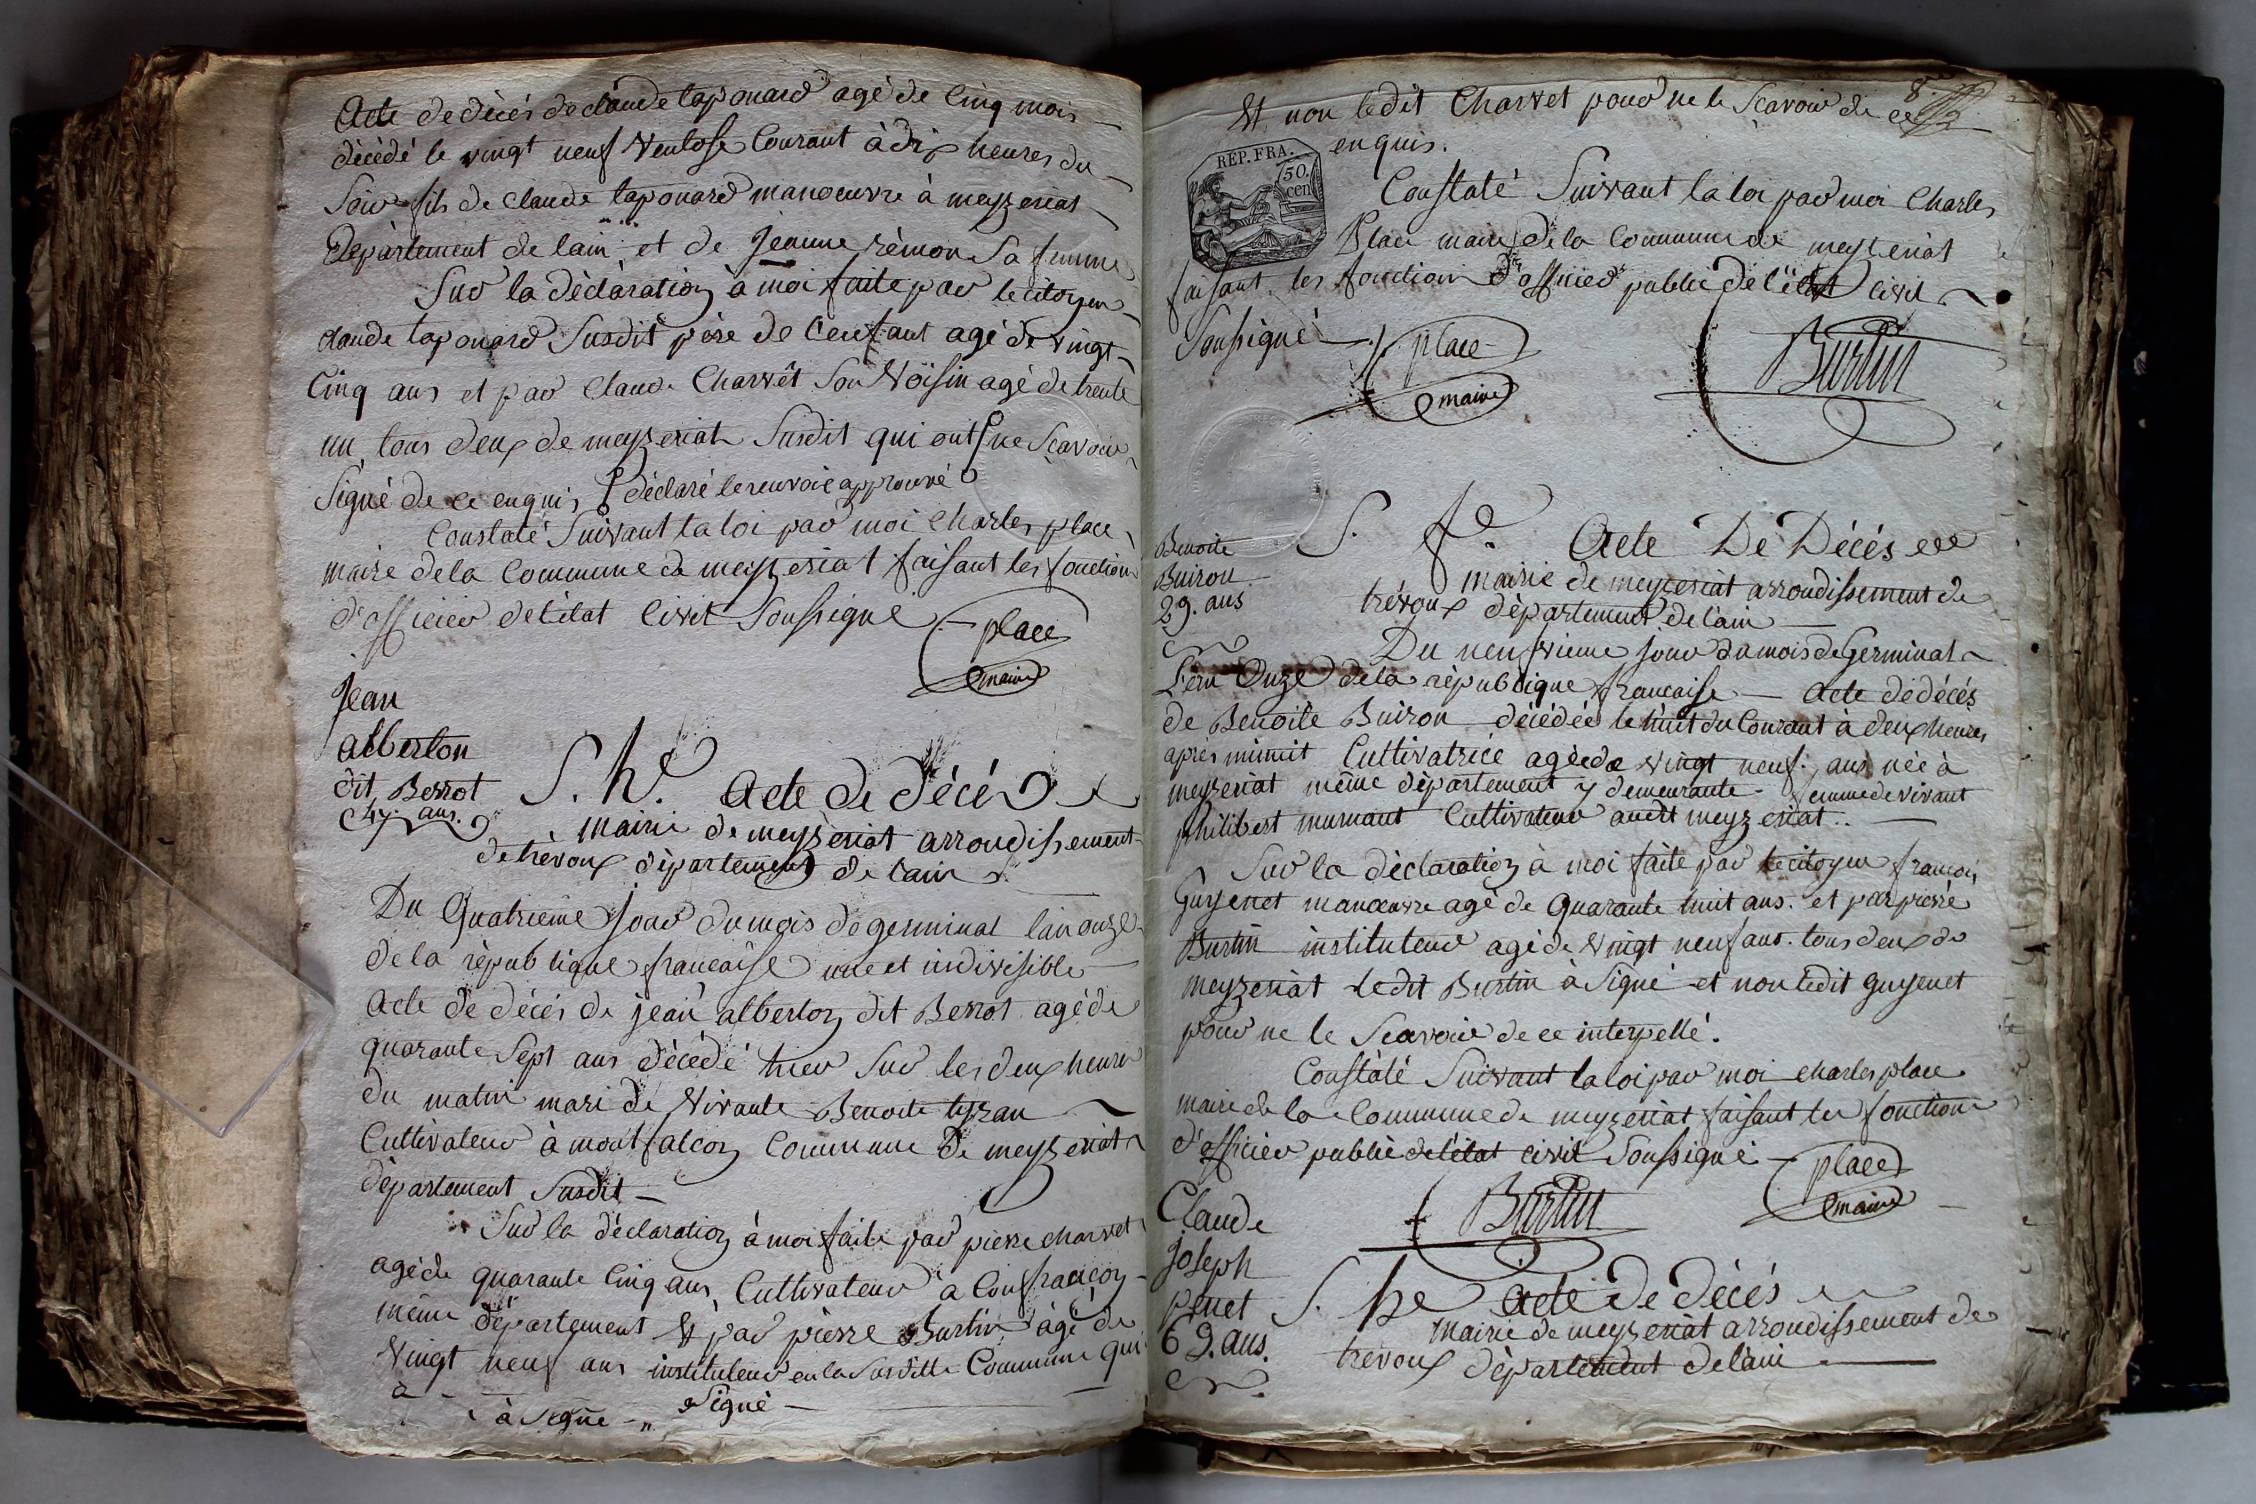 Acte de décès de claude taponard agé de Cinq mois
décédé le vingt neuf Ventose Courant à dix heures du
Soir fils de claude taponard manoeuvre à meyzeriat
Département de lain et de jeanne rémon Sa femme
Sur la déclaration à moi faite par le citoyen
claude taponard Susdit père de l'enfant agé de vingt
Cinq ans et par Claude Charvêt Son Voisin agé de trente
un, tous deux de meyzeriat Susdit qui ont ne Scavoir
Signé de ce enquis déclaré le renvoie approuvé
Constaté Suivant la loi par moi Charles place
maire de la Commune de meyzeriat faisant les fonction
d'officier de l'état Civil Soussigné
place
maire
Jean
alberton
dit Berrot
47 ans.
S. h.e Acte de décés
mairie de meyzériat arroudissement
de trévoux département de lain
Du Quatrieme jour du mois de germinal l'an onze
de la république francaise une et indivisible
Acte de décés de jean alberton dit Berrot agé de
quarante Sept ans décédé hier Sur les deux heures
du matin mari de Vivante Benoite tyran
Cultivateur à montfalcon Commune de meyzeriat
département Susdit
Sur la déclaration à moi faite par pierre charvet
agé de quarante Cinq ans Cultivateur à Confrancon
même département Et par pierre Burtin agé de
Vingt neuf ans instituteur en la Susditte Commune qui
a
à Signé
Signé
8.
Et non ledit Charvet pour ne le Scavoir de ce
enquis.
REP. FRA.
50.
cen
Constaté Suivant la loi par moi Charles
Place maire de la Commune de meyzeriat
faisant les fonction d'officier public de l'état civil
Soussigné
place
maire
Burtin
Benoite
Buiron
29. ans
S. f.e Acte De Décés
mairie de meyzeriat arroudissement de
trévoux département de lain
Du neufvieme jour du mois de Germinal
L'an Onze de la république francaise Acte de décés
de Benoite Buiron décédée le huit du Courant à deux heures
après minuit Cultivatrice agée de vingt neuf ans née à
meyzeriat même département y demeurante femme de vivant
philibert murnant Cultivateur audit meyzeriat
Sur la déclaration à moi faite par le citoyen francois
Guyenet manœuvre agé de Quarante huit ans. et par pierre
Burtin instituteur agé de Vingt neuf ans. tous deux de
meyzeriat ledit Burtin à Signé et non ledit guyenet
pour ne le Scavoir de ce interpellé.
Constaté Suivant la loi par moi charles place
maire de la Commune de meyzeriat faisant les fonction
d'officier public de l'état civil Soussigné
place
maire
Burtin
Claude
Joseph
penet
69. ans.
S. he Acte de décés
mairie de meyzeriat arroudissement de
trevoux département de l'ain